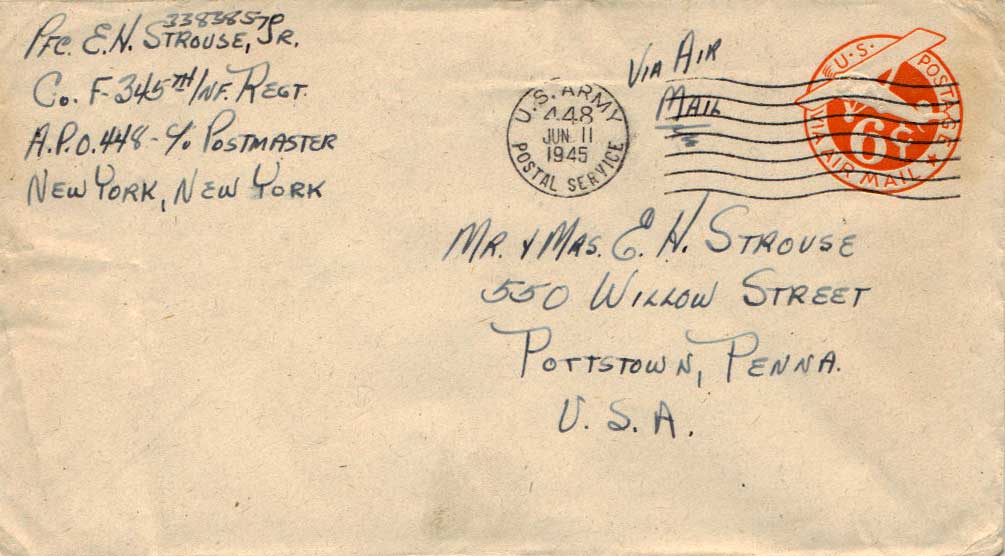 33838570
Pfc. E.H. Strouse, Jr.
Co. F-345TH Inf. Regt.
A.P.O. 448 - c/o Postmaster
New York, New York
Via Air
Mail
U.S. ARMY
448
JUN 11
1945
POSTAL SERVICE
U.S. POSTAGE
6 C
VIA AIR MAIL
Mr. & Mrs. E. H. Strouse
550 Willow Street
Pottstown, Penna.
U.S.A.